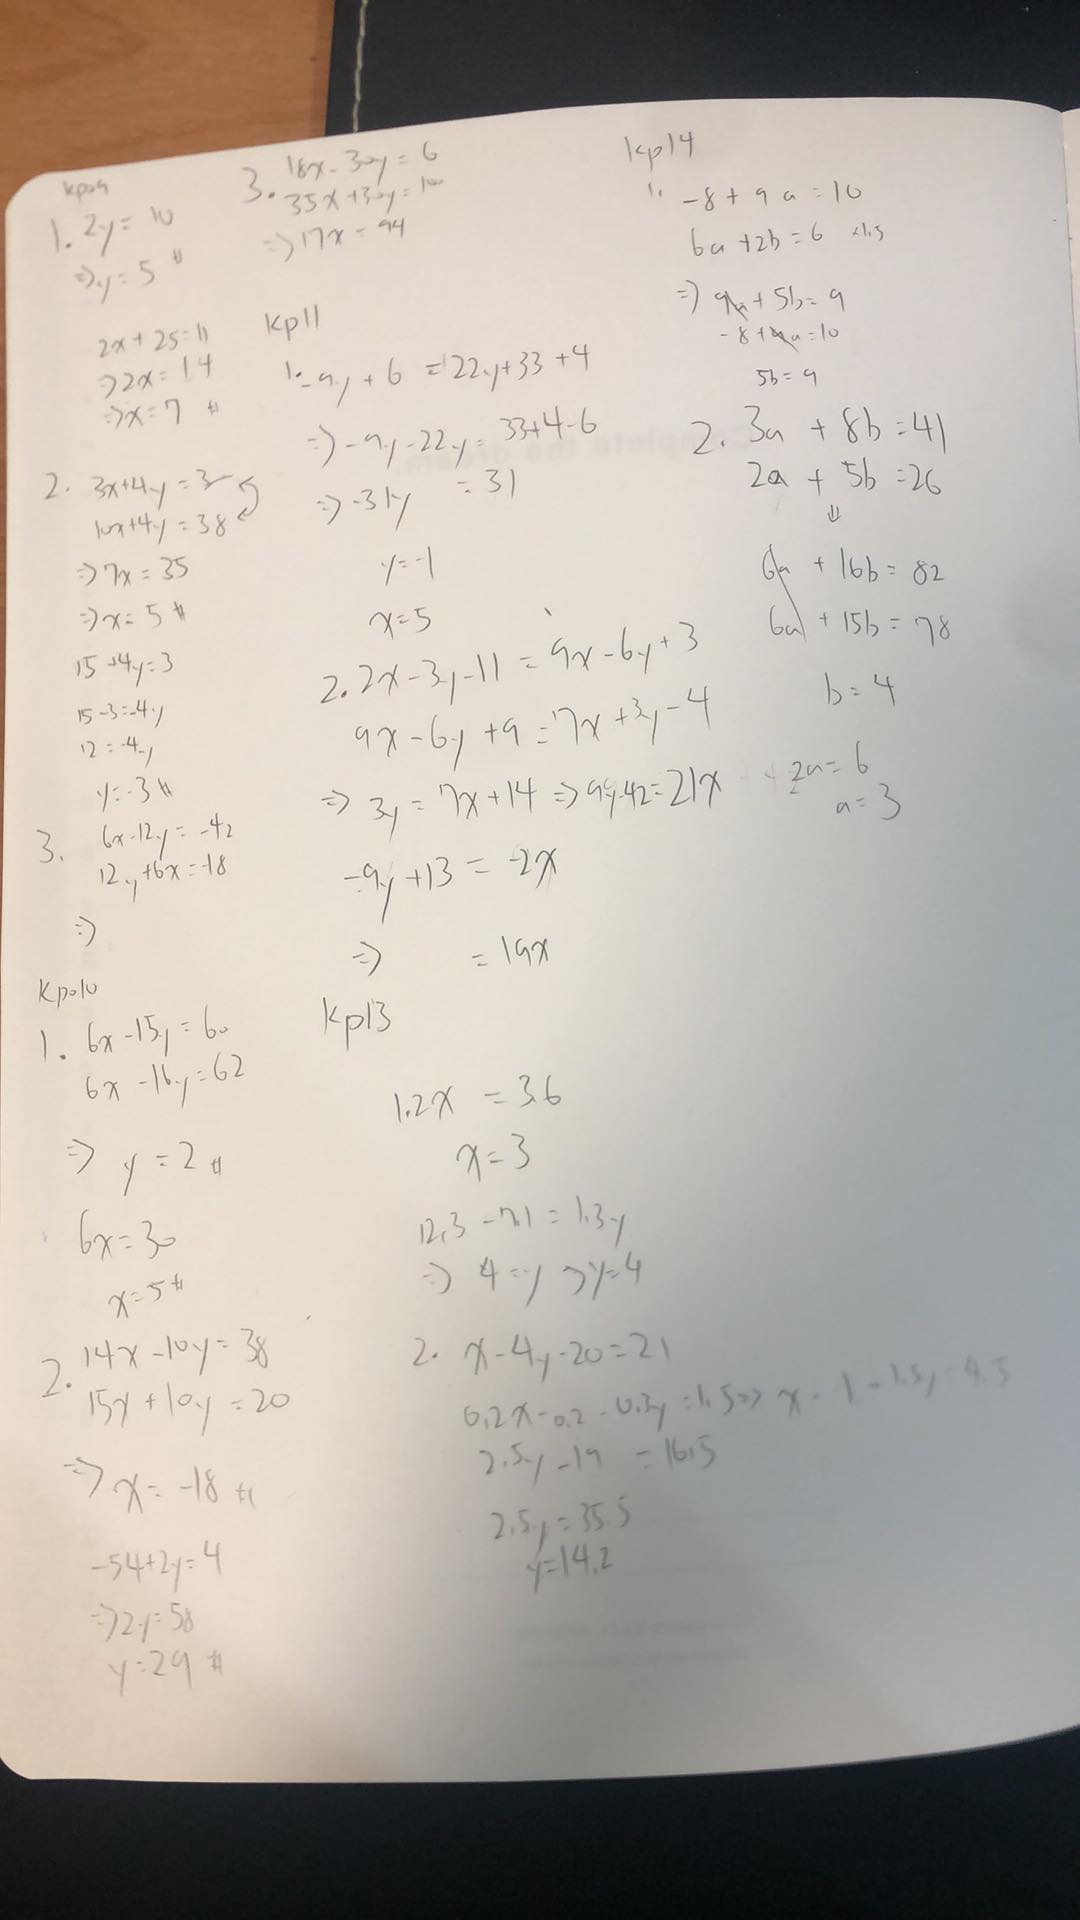 kp09
1. 2y = 10
⇒ y = 5 #
2x + 25 = 11
⇒ 2x = 14
⇒ x = 7 #
2. 3x+4y = 3
10x+4y = 38
⇒ 7x = 35
⇒ x = 5 #
15 + 4y = 3
15-3 = -4y
12 = -4y
y = -3 #
3. 6x-12y = -42
12y+6x = -18
⇒
kp010
1. 6x - 15y = 60
6x - 16y = 62
⇒ y = 2 #
6x = 30
x = 5 #
2. 14x - 10y = 38
15x + 10y = 20
⇒ x = -18 #
-54+2y = 4
⇒ 2y = 58
y = 29 #
3. 18x - 30y = 6
35x + 30y = 100
⇒ 17x = 94
kp11
1. -9y + 6 = 22y+33 + 4
⇒ -9y - 22y = 33+4-6
⇒ -31y = 31
y = -1
x = 5
2. 2x - 3y - 11 = 9x - 6y + 3
9x - 6y + 9 = 7x + 3y - 4
⇒ 3y = 7x + 14 ⇒ 9y-42 = 21x
-9y + 13 = -2x
⇒ = 19x
kp13
1.2x = 3.6
x = 3
12.3 - 7.1 = 1.3y
⇒ 4 = y ⇒ y = 4
2. x - 4y - 20 = 21
0.2x - 0.2 - 0.3y = 1.5 ⇒ x - 1 - 1.5y = 4.5
2.5y - 19 = 16.5
2.5y = 35.5
y = 14.2
kp14
1. -8 + 9a = 10
6a + 2b = 6 ×1.5
⇒ 9a + 5b = 9
-8 + 9a = 10
5b = 9
2. 3a + 8b = 41
2a + 5b = 26
⇓
6a + 16b = 82
6a + 15b = 78
b = 4
2a = 6
a = 3